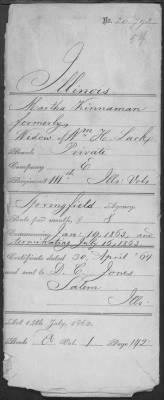 No. 20,792
Illinois
Martha Kinnaman
formerly
Widow of Wm H. Lack
Rank Private
Company E
Regiment 111th Ills: Vols
Springfield Agency
Rate per month, $ 8
Commencing Jan: 19, 1863, and
terminating July 16, 1863
Certificate dated 30, April '64
and sent to D. C. Jones
Salem
Ills:
Act 14th July, 1862.
Book A Vol. 1 Page 142